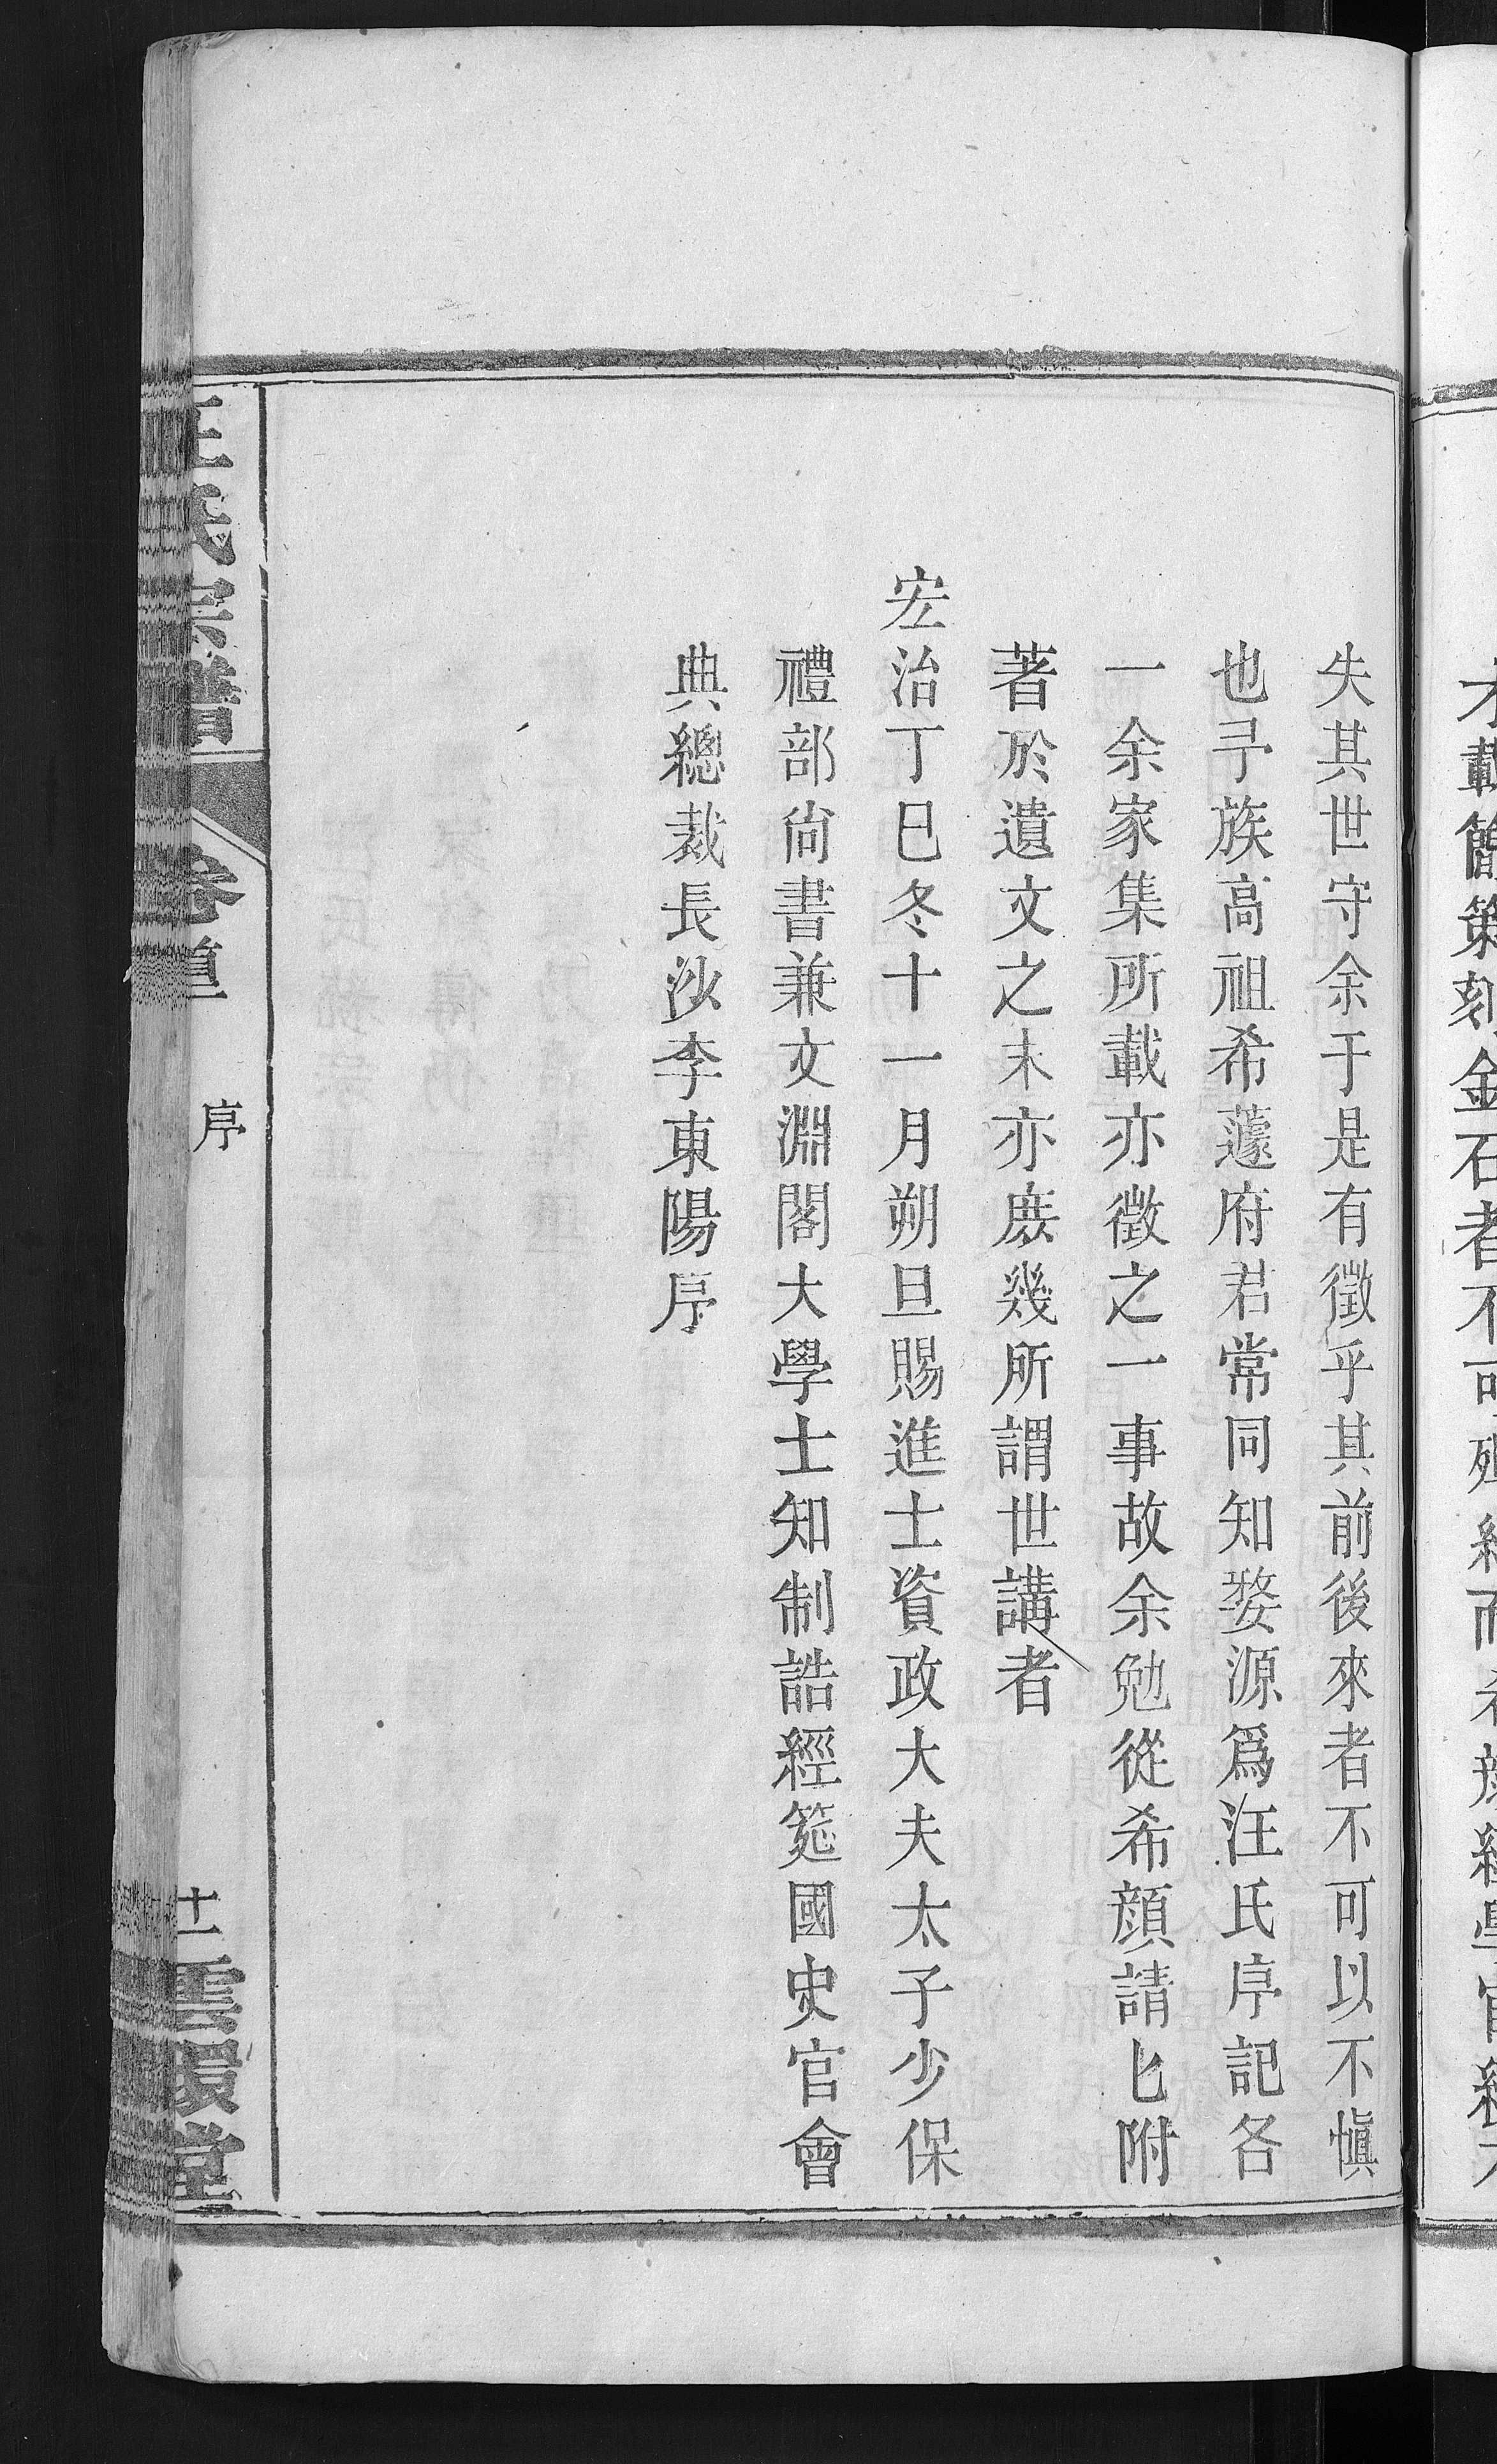 載簡策刻金石者不可
失其世守余于是有徵乎其前後來者不可以不愼
也予族高祖希蘧府君常同知婺源爲汪氏序記各
一余家集所載亦徵之一事故余勉從希顏請匕附
著於遺文之末亦庶幾所謂世講者
宏治丁巳冬十一月朔旦賜進士資政大夫太子少保
禮部尙書兼文淵閣大學士知制誥經筵國史官會
典總裁長沙李東陽序
汪氏宗譜
卷首
序